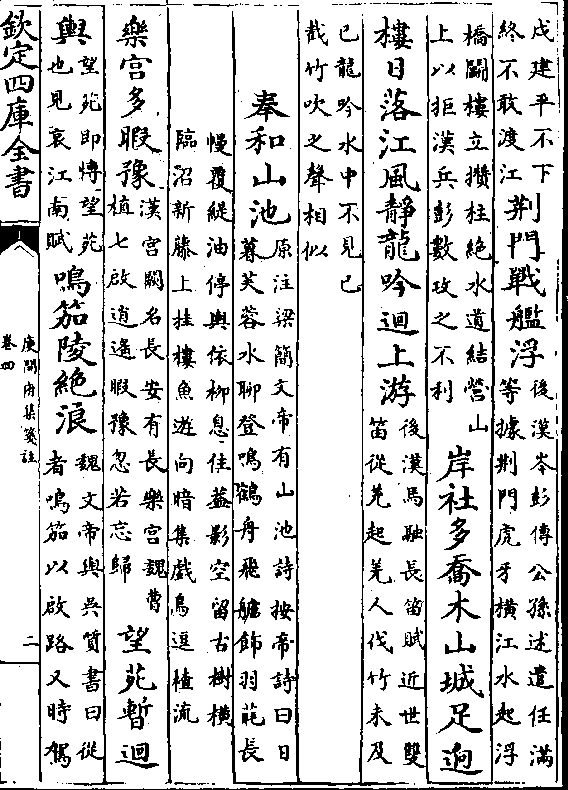 戍建平不下終不敢渡江荆門戰艦浮後漢岑彭傳公孫述遣任滿等據荆門虎牙横江水起浮
橋鬬樓立攢柱絶水道結營山上以拒漢兵彭數攻之不利岸社多喬木山城足迥
樓日落江風靜龍吟迴上游後漢馬融長笛賦近世雙笛從羌起羌人伐竹未及
已龍吟水中不見已截竹吹之聲相似
奉和山池原注梁簡文帝有山池詩按帝詩曰日暮芙蓉水聊登鳴鶴舟飛艫飾羽毦長
幔覆緹油停輿依柳息住葢影空留古樹横臨沼新藤上挂樓魚遊向暗集戲鳥逗楂流
樂宫多暇豫漢宫闕名長安有長樂宫魏曹植七啟逍遥暇豫忽若忘歸望苑暫迴
輿望苑即博望苑也見哀江南賦鳴笳陵絶浪魏文帝與吳質書曰從者鳴笳以啟路又時駕
欽定四庫全書
庾開府集箋註
卷四
二